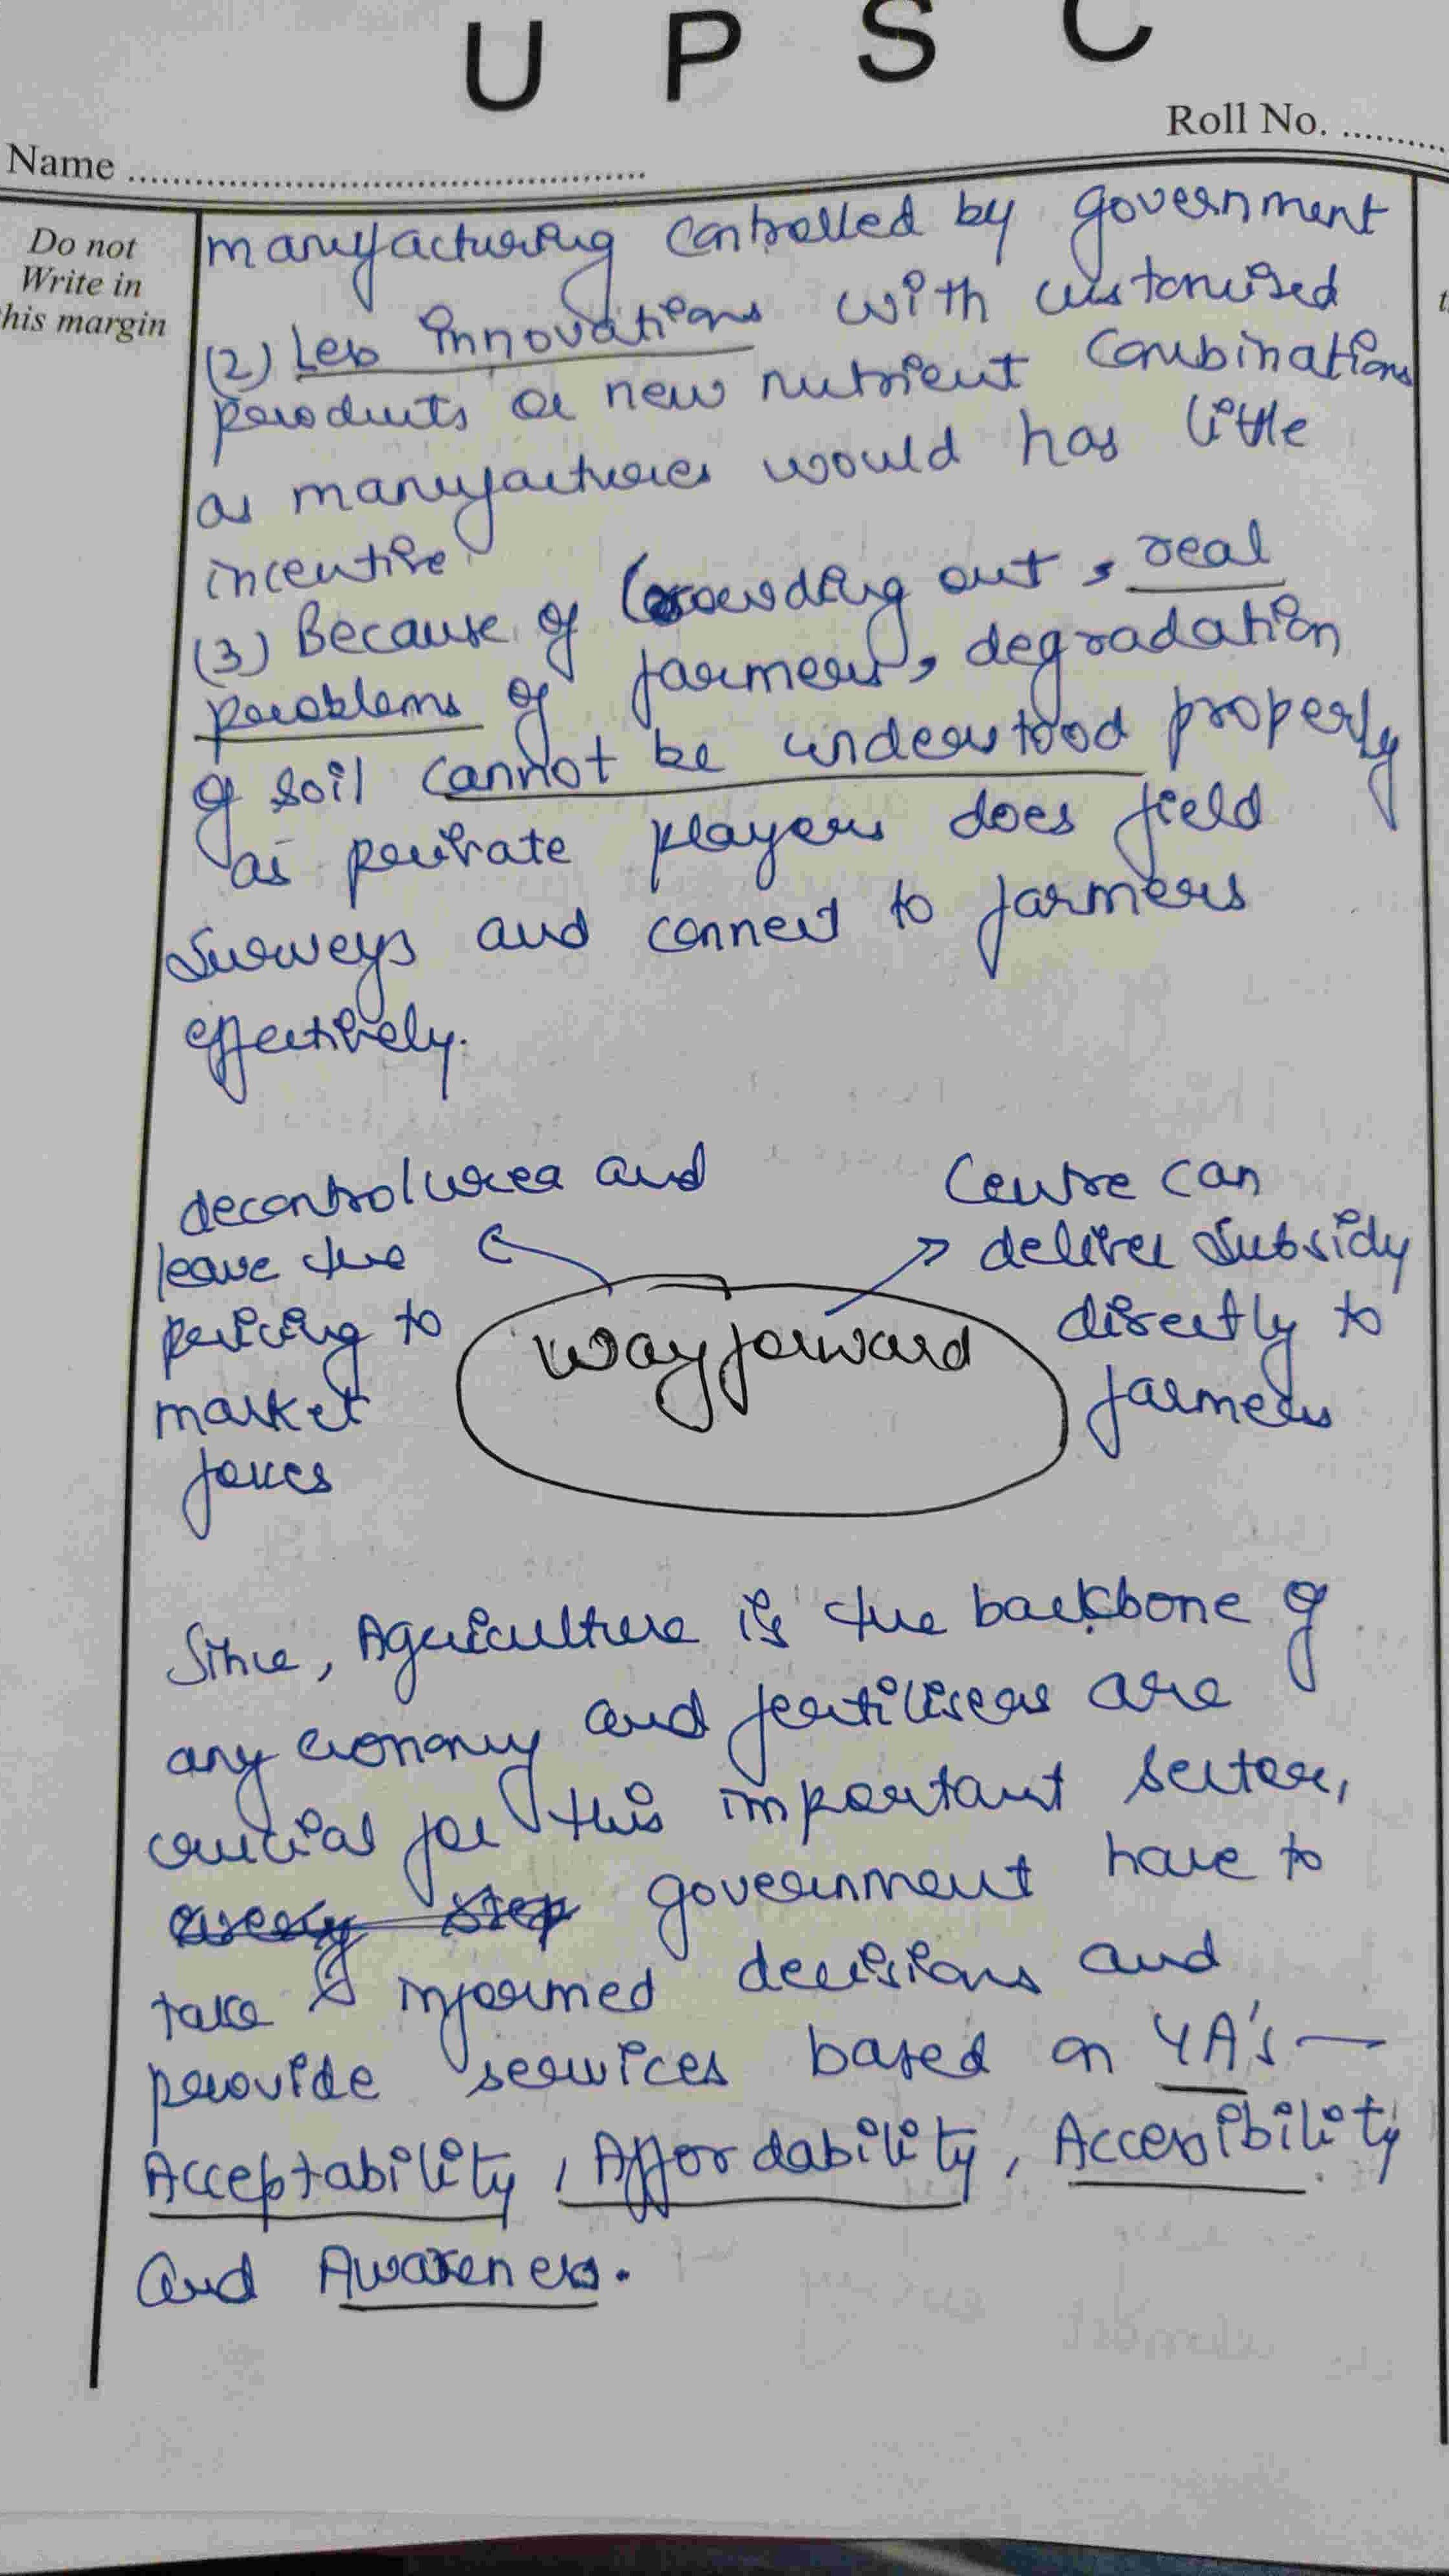 U P S C
Roll No. ..........
Name ................................................
Do not
Write in
his margin
manufacturing controlled by government
(2) Less innovations with customised
products or new nutrient combinations
as manufactures would has little
incentive.
(3) Because of Crowding out, real
problems of farmers, degradation
of soil cannot be understood properly
as private players does field
surveys and connect to farmers
effectively.
decontrol urea and
leave the
pricing to
market
forces
way forward
Centre can
deliver subsidy
directly to
farmers
Since, Agriculture is the backbone of
any economy and fertilisers are
crucial for this important sector,
every step government have to
take informed decisions and
provide services based on 4A's —
Acceptability, Affordability, Accessibility
and Awareness.